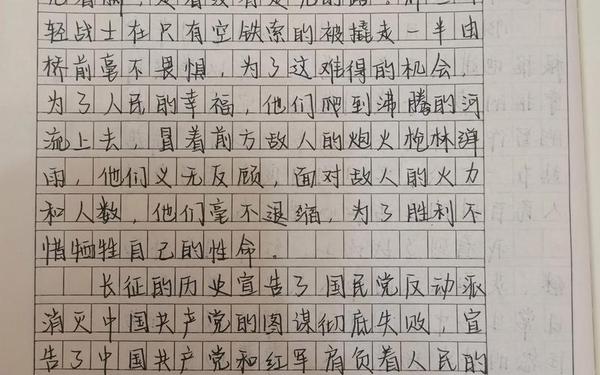 轻战士在只有空铁索的被撬走一半由
桥前毫不畏惧，为了这难得的机会，
为了人民的幸福，他们爬到沸腾的河
流上去，冒着前方敌人的炮火枪林弹
雨，他们义无反顾，面对敌人的火力
和人数，他们毫不退缩，为了胜利不
惜牺牲自己的性命。
长征的历史宣告了国民党反动派
消灭中国共产党的图谋彻底失败，宣
告了中国共产党和红军肩负着人民的